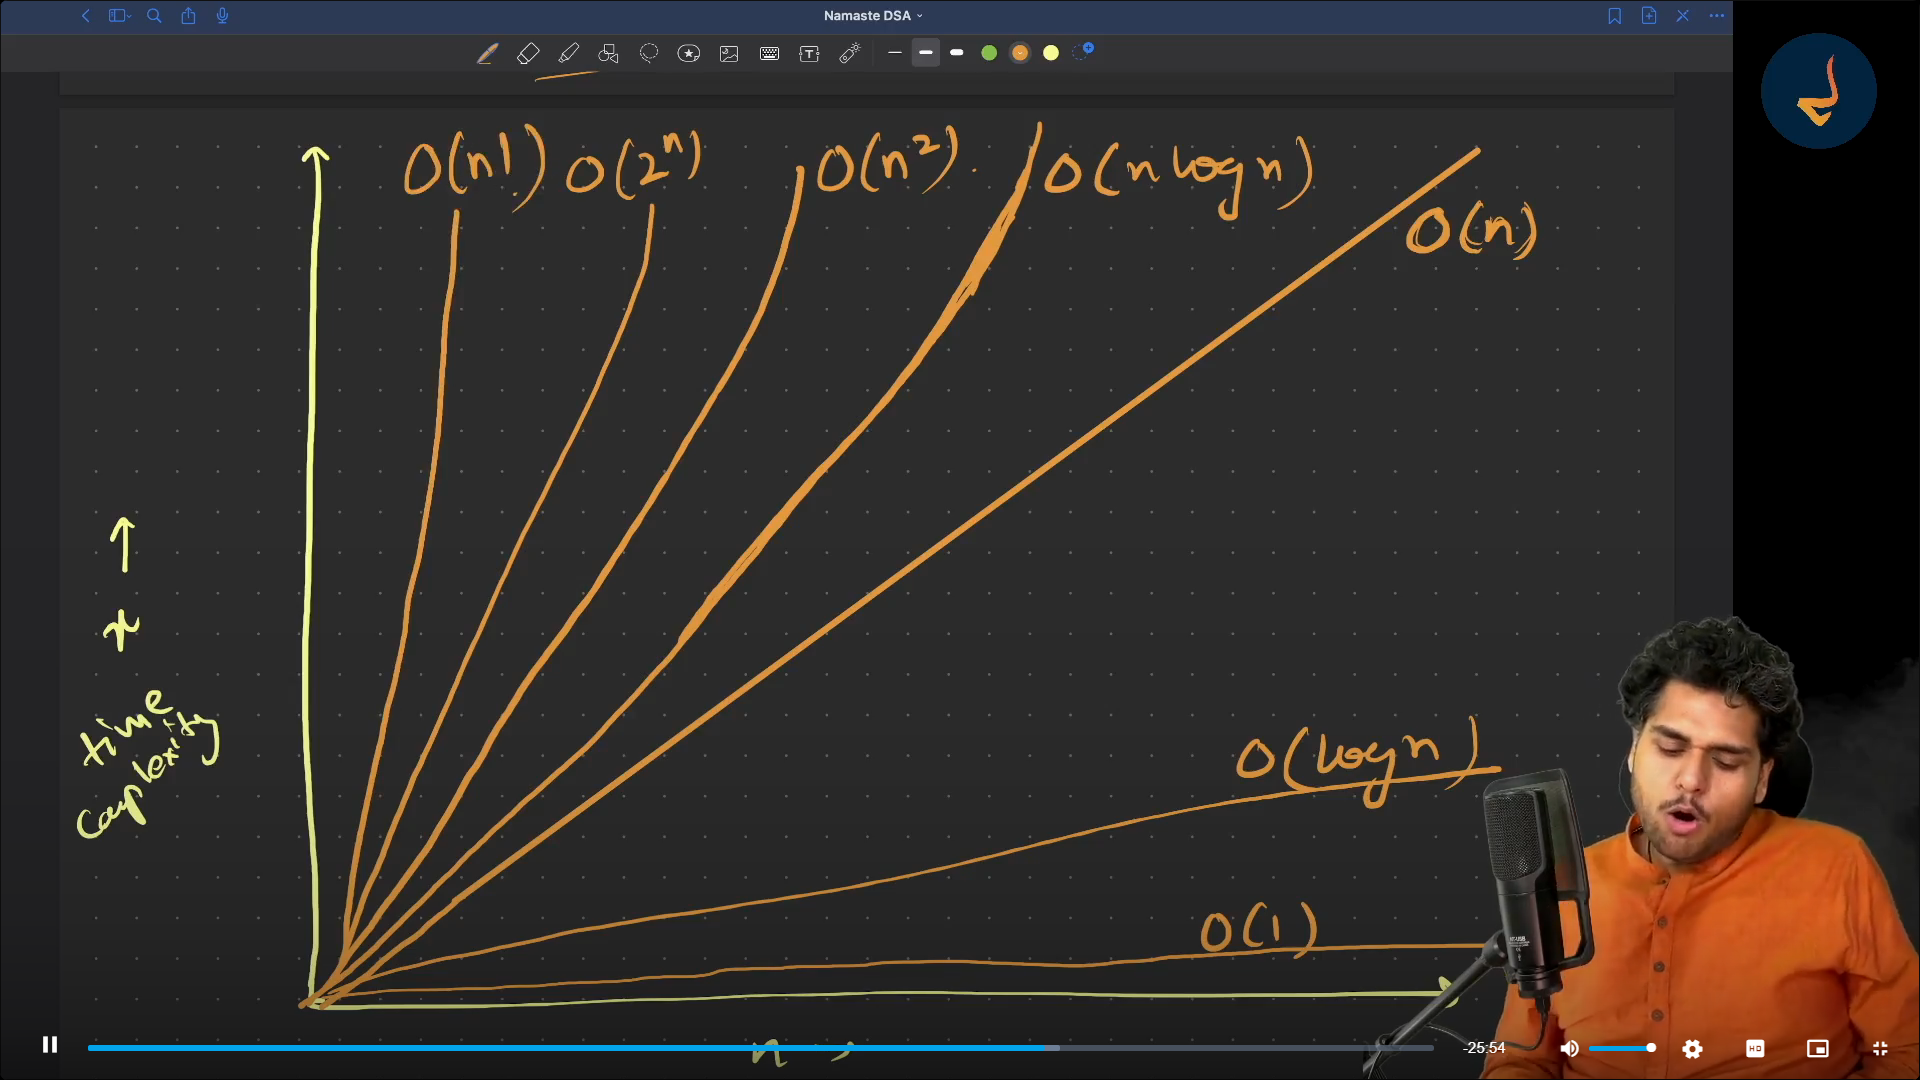 Namaste DSA
O(n!) O(2ⁿ) O(n²). O(n log n)
O(n)
time
complexity
O(log n)
O(1)
n →
-25:54
HD